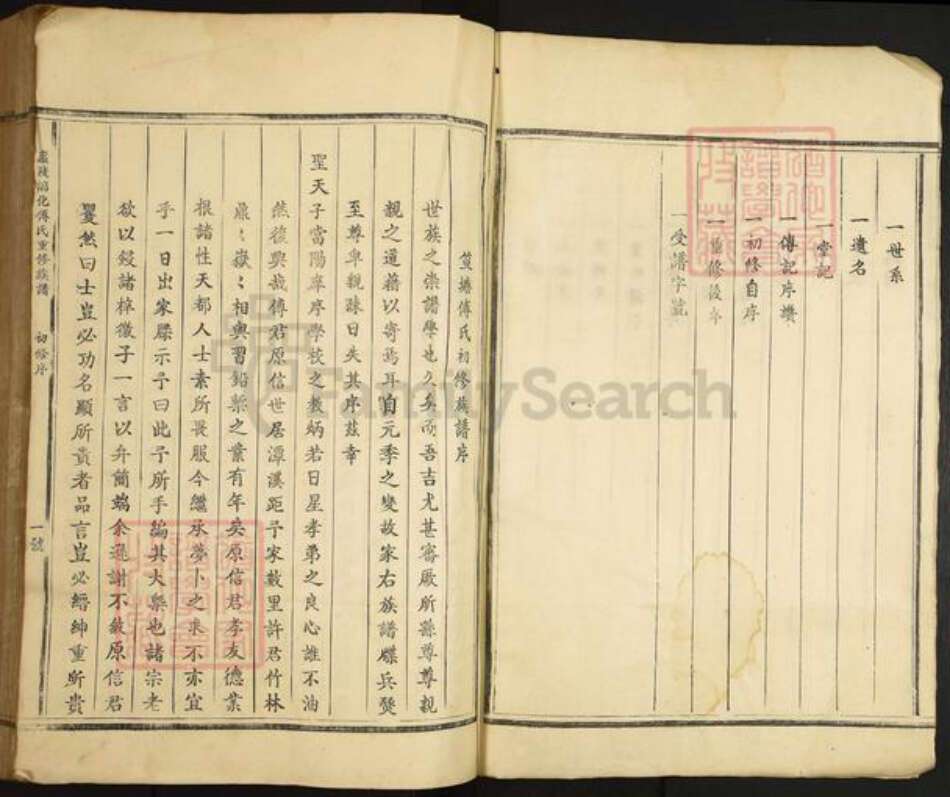 一世系
一遺名
一堂記
一傳記序讚
一初修自序
一重修後序
一受譜字號
傅氏初修族譜序
世族之崇譜學也久矣而吾吉尤甚審厥所繇尊尊親
親之道藉以寄焉耳自元季之變故家右族譜牒兵燹
至尊卑親疎日失其序茲幸
聖天子當陽庠序學校之教炳若日星孝弟之良心誰不油
然後興哉傅君原信世居潭溪距予家數里許君竹林
鼎鼎嶽嶽相與習鉛槧之業有年矣原信君孝友德業
根諸性天都人士素所畏服今繼承夢卜之求不亦宜
乎一日出家牒示予曰此予所手編其大槩也諸宗老
欲以鋟諸梓徵子一言以弁簡端余遜謝不敏原信君
戛然曰士豈必功名顯所貴者品言豈必縉紳重所貴
廬陵 化傅氏重修族譜 初修序 一號
FamilySearch